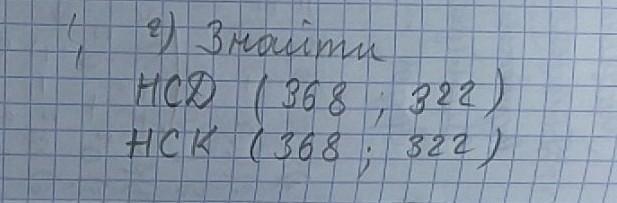 г) Знайти
НСД (368 ; 322)
НСК (368 ; 322)